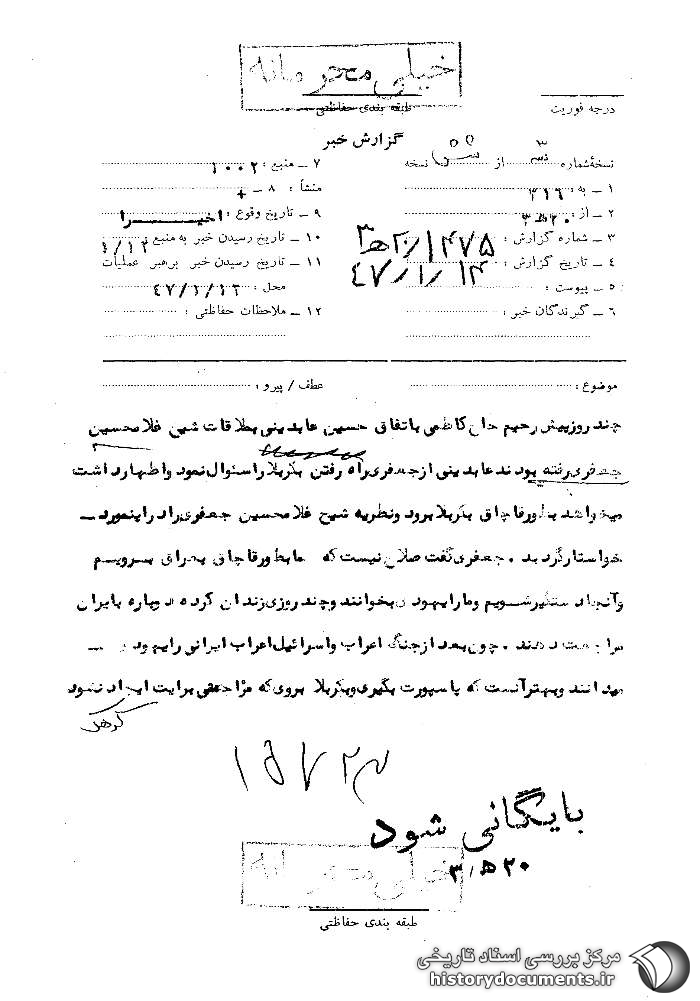 خیلی محرمانه
طبقه بندی حفاظتی
درجه فوریت
گزارش خبر
نسخهٔ شماره ۳ از نسخه
۱ – به : ۳۱۶
۲ – از : ۲۰ ه‍ ۳
۳ – شماره گزارش : ۱۴۷۵ / ۲۰ ه‍ ۳
۴ – تاریخ گزارش : ۴۷/۱/۱۴
۵ – پیوست :
۶ – گیرندگان خبر :
۷ – منبع : ۱۰۰۲
۸ – منشأ : +
۹ – تاریخ وقوع : اخیرا
۱۰ – تاریخ رسیدن خبر به منبع : ۱/۱۲
۱۱ – تاریخ رسیدن خبر برهبر عملیات
محل : ۴۷/۱/۱۲
۱۲ – ملاحظات حفاظتی :
موضوع : عطف / پیرو :
چند روز پیش رحیم حاج کاظمی باتفاق حسین عابدینی بملاقات شیخ غلامحسین
جعفری رفته بودند عابدینی از جعفری راه رفتن بکربلا را سئوال نمود و اظهار داشت
میخواهد بطور قاچاق بکربلا برود و نظریه شیخ غلامحسین جعفری را در اینمورد –
خواستار گردید . جعفری گفت صلاح نیست که ما بطور قاچاق بعراق برویم
و آنجا دستگیر شویم و ما را یهود بخوانند و چند روزی زندان کرده دوباره بایران
مراجعت دهند . چون بعد از جنگ اعراب و اسرائیل اعراب ایرانی را یهودی –
میدانند و بهتر آنست که پاسپورت بگیری و بکربلا بروی که مزاحمتی برایت ایجاد نشود
بایگانی شود
۲۰ ه‍ ۳
خیلی محرمانه
طبقه بندی حفاظتی
مرکز بررسی اسناد تاریخی
historydocuments.ir